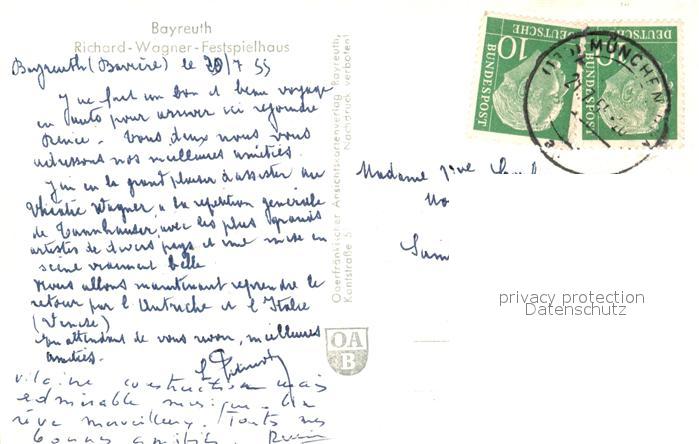 Bayreuth
Richard-Wagner-Festspielhaus
Bayreuth (Bavière) le 20/7 55
J'ai fait un bon et beau voyage
en auto pour arriver ici rejoindre
Vous deux nous vous
adressons nos meilleures amitiés.
J'ai eu le grand plaisir d'assister au
théatre Wagner, a la repetition générale
de Tannhauser, avec les plus grands
artistes de divers pays et une mise en
scène vraiment belle
Nous allons maintenant reprendre le
retour par l'Autriche et l'Italie
(Venise)
En attendant de vous revoir, meilleures
amitiés.
vilaine construction mais
admirable musique. Un
rêve merveilleux. Toutes mes
bonnes amitiés.
Oberfränkischer Ansichtskartenverlag Bayreuth,
Kantstraße 5 Nachdruck verboten!
OA
B
10
DEUTSCHE
BUNDESPOST
10
DEUTSCHE
BUNDESPOST
MÜNCHEN
Madame
privacy protection
Datenschutz